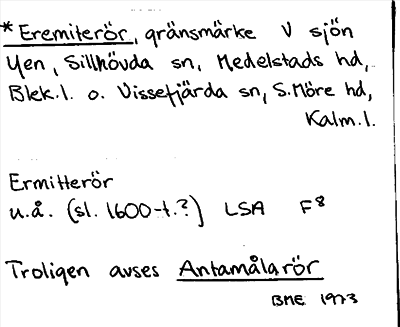 * Eremiterör, gränsmärke V sjön
Yen, Sillhövda sn, Medelstads hd,
Blek.l. o. Vissefjärda sn, S.Möre hd,
Kalm.l.
Ermitterör
u.å. (sl. 1600-t.?) LSA F⁸
Troligen avses Antamålarör
BME 1973